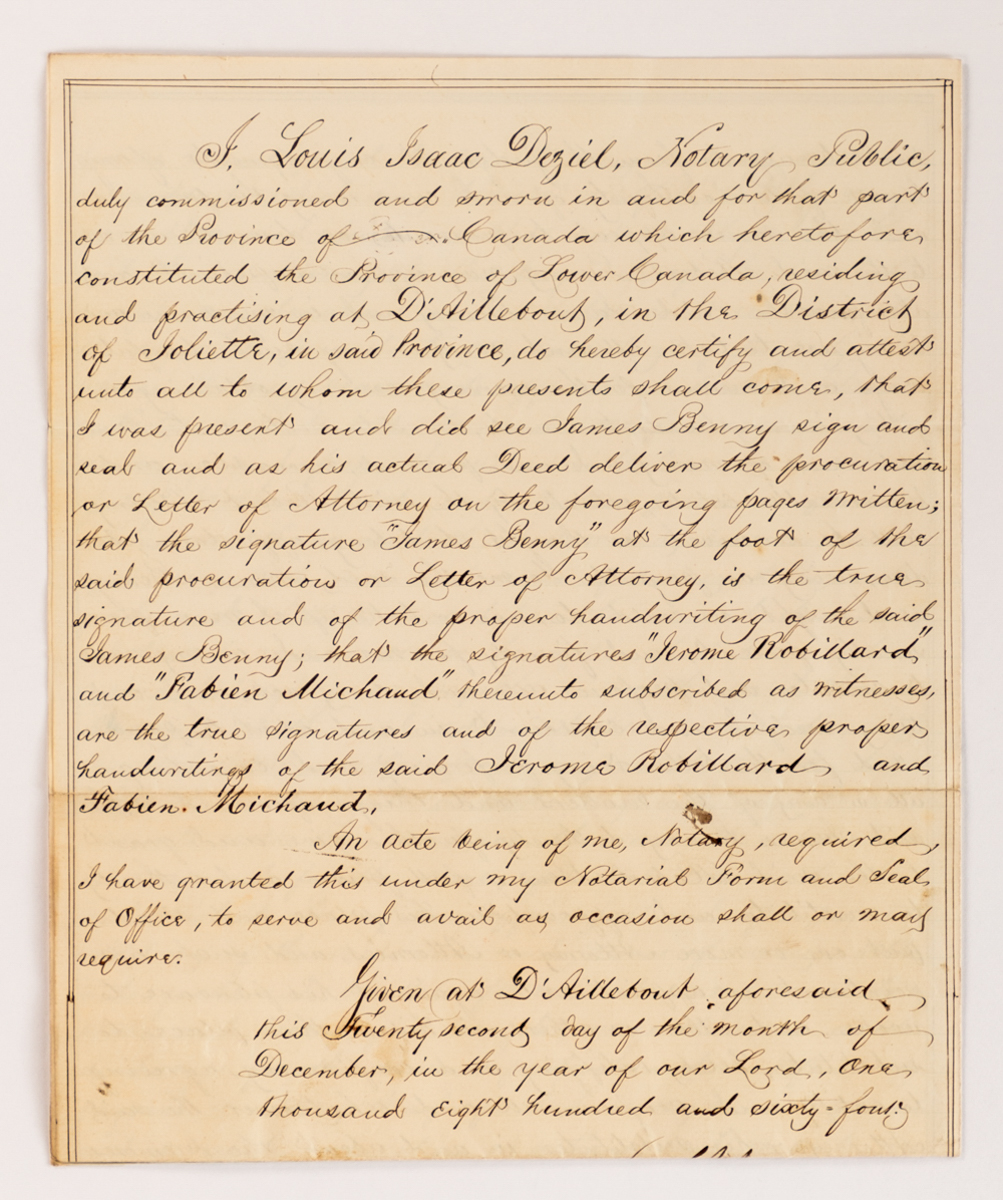 I, Louis Isaac Deziel, Notary Public,
duly commissioned and sworn in and for that part
of the Province of Canada which heretofore
constituted the Province of Lower Canada, residing
and practising at D'Aillebout, in the District
of Joliette, in said Province, do hereby certify and attest
unto all to whom these presents shall come, that
I was present and did see James Benny sign and
seal and as his actual Deed deliver the procuration
or Letter of Attorney on the foregoing pages written;
that the signature "James Benny" at the foot of the
said procuration or Letter of Attorney, is the true
signature and of the proper handwriting of the said
James Benny; that the signatures "Jerome Robillard"
and "Fabien Michaud" thereunto subscribed as witnesses,
are the true signatures and of the respective proper
handwritings of the said Jerome Robillard and
Fabien Michaud.
An acte being of me, Notary, required,
I have granted this under my Notarial Form and Seal
of Office, to serve and avail as occasion shall or may
require.
Given at D'Aillebout aforesaid
this Twenty second day of the month of
December, in the year of our Lord, One
thousand eight hundred and sixty-four.